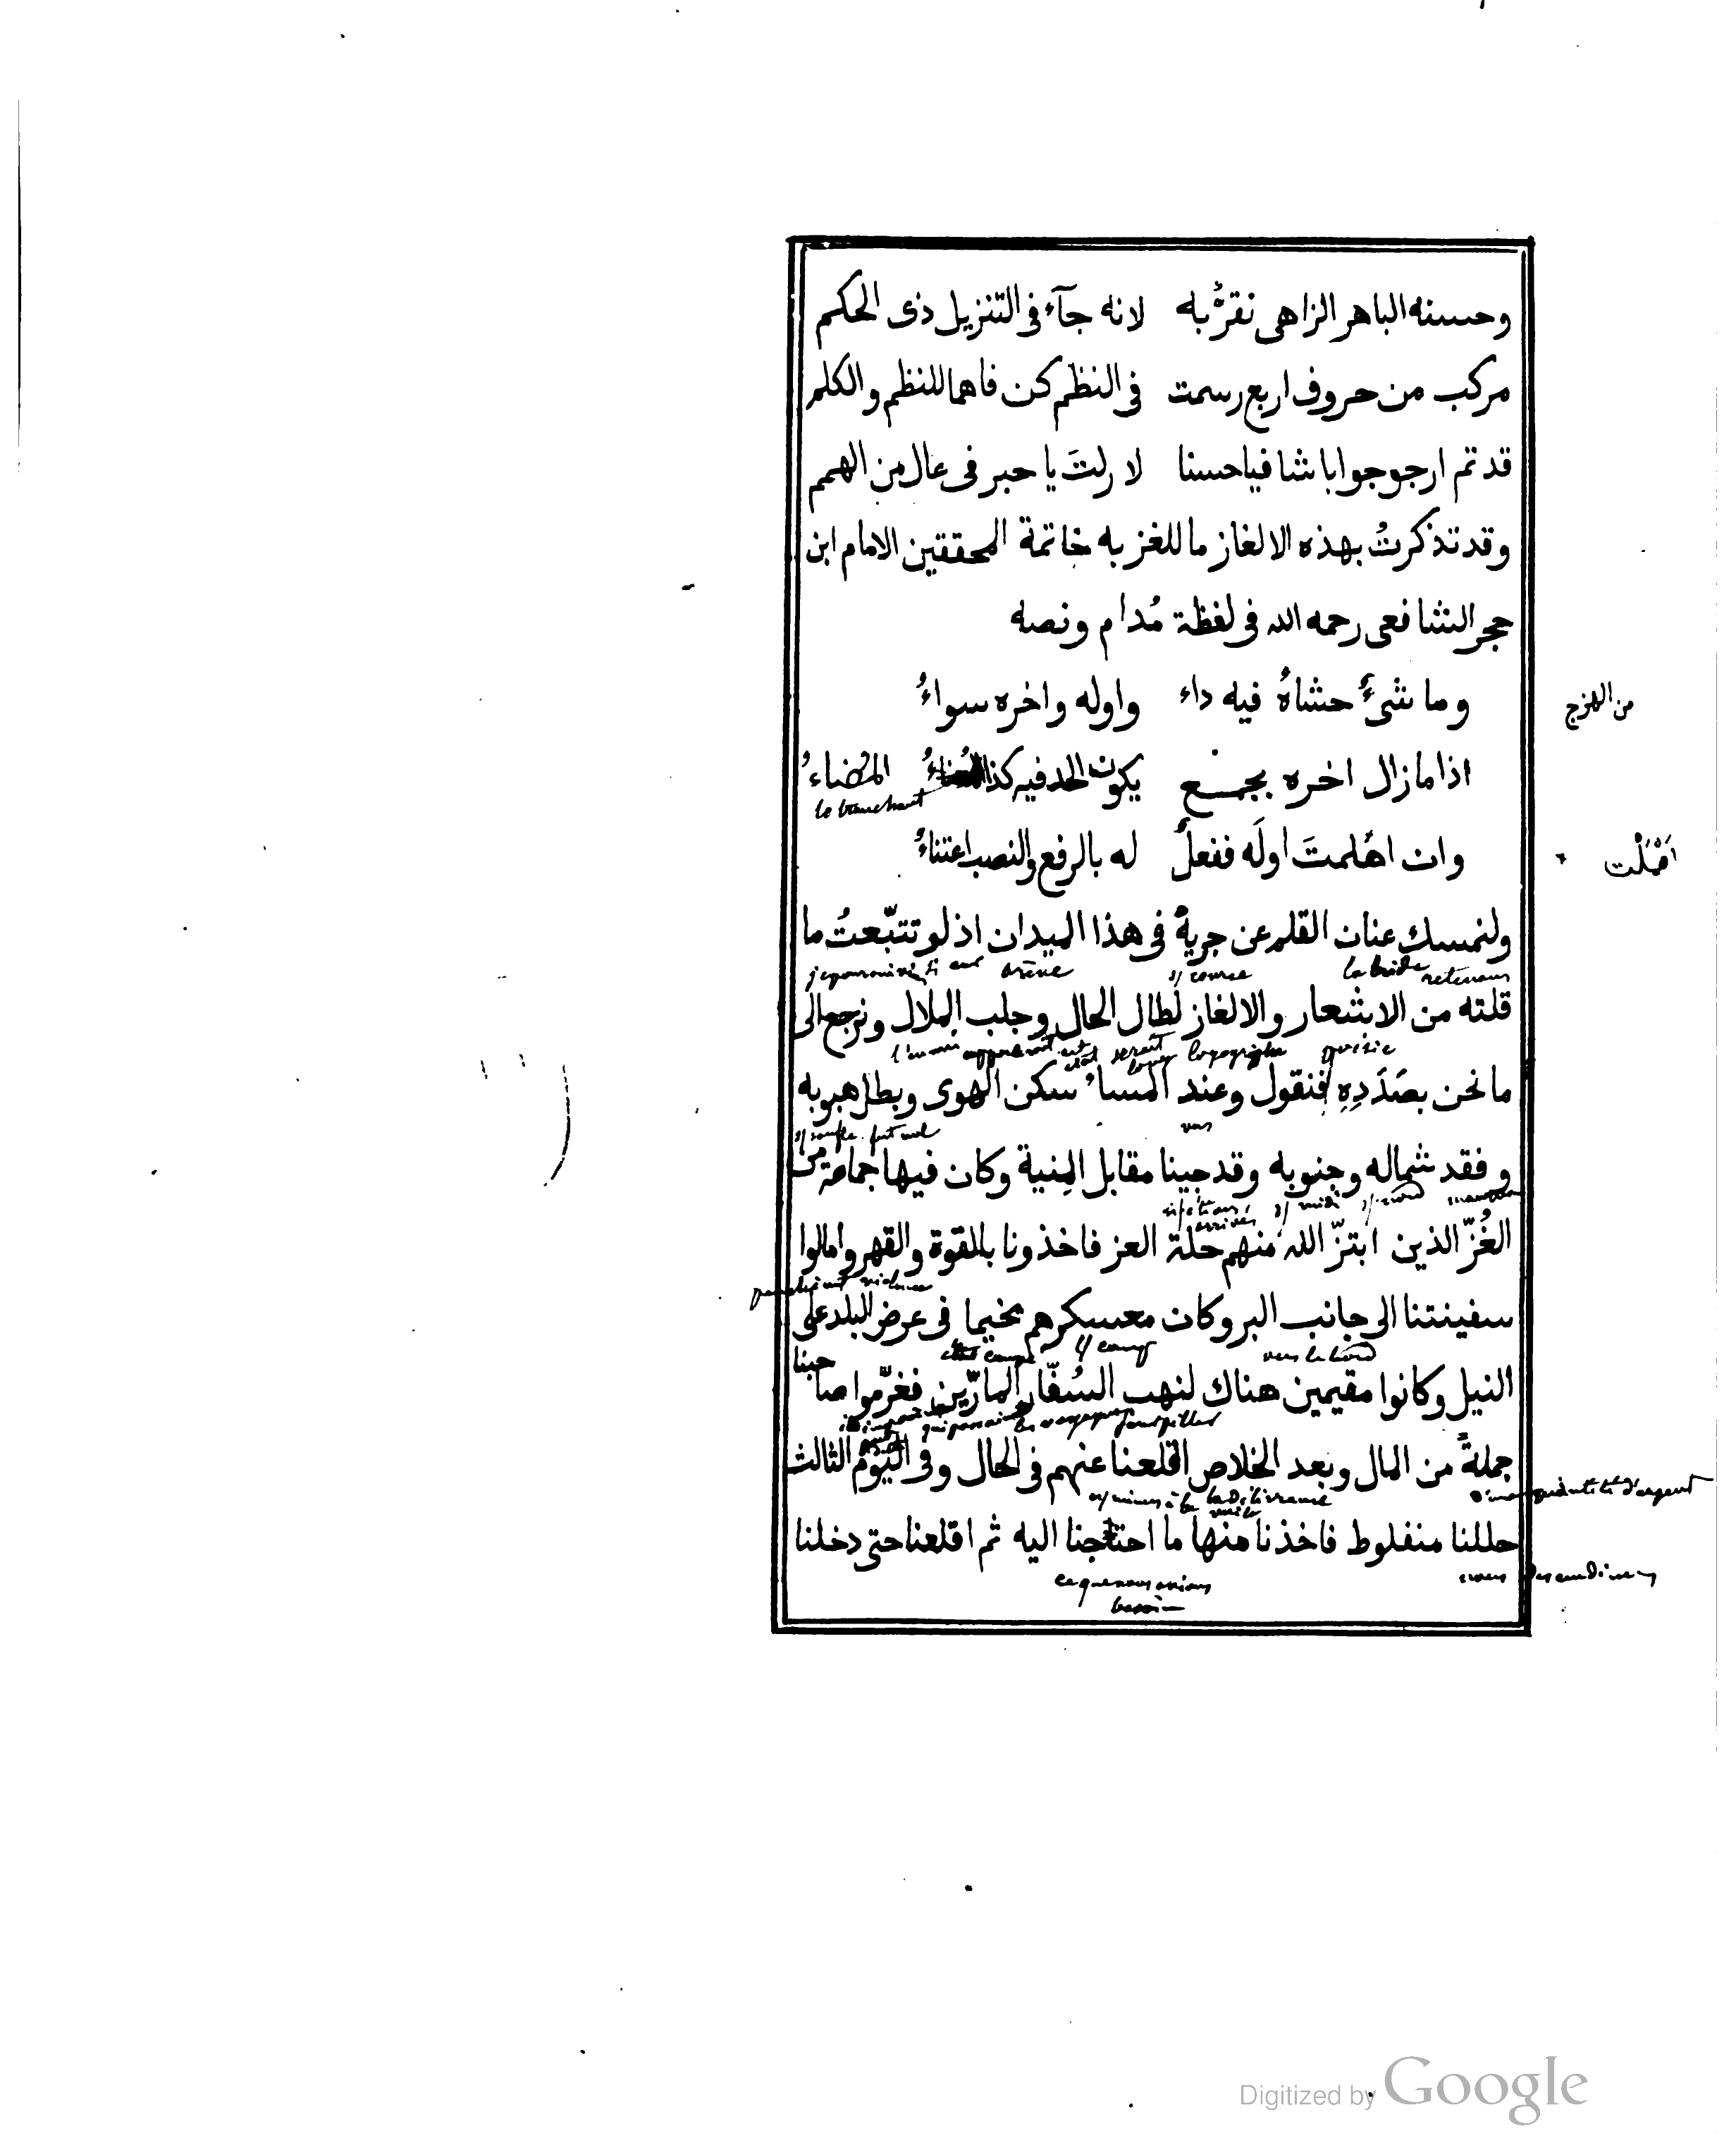 وحسنه الباهر الزاهى نقرُّ به لانه جآء فى التنزيل ذى الحكم
مركب من حروف اربع رسمت فى النظم كن فاهما للنظم والكلم
قد تم ارجو جوابا شافيا حسنا لا زلتَ يا حبر فى عال من الهمم
وقد تذكرتُ بهذه الالغاز ما للغز به خاتمة المحققين الامام ابن
حجر الشافعى رحمه الله فى لفظة مُدام ونصه
وما شئٌ حشاهُ فيه داء واوله واخره سواءُ
من الهزج
اذا ما زال اخره بجمع يكون الحد فيه كذا المضاءُ
le tranchant
وان اهملتَ اولَه ففعلٌ له بالرفع والنصب اعتناءُ
اَهْمَلْت
ولنمسك عنان القلم عن جريهٌ فى هذا الميدان اذ لو تتبّعتُ ما
arène course la bride retenons
قلته من الاشعار والالغاز لطال الحال وجلب الملال ونرجع الى
logogriphe poésie
ما نحن بصَدَدِهِ فنقول وعند المساء سكن الهوى وبطل هبوبه
وفقد شماله وجنوبه وقد جينا مقابل المِنية وكان فيها جماعة من
الغُزّ الذين ابتزّ الله منهم حلة العز فاخذونا بالقوة والقهر وامالوا
violence
سفينتنا الى جانب البر وكان معسكرهم مخيما فى عرض البلد على
camp vers le bord
النيل وكانوا مقيمين هناك لنهب السُفّار المارّين فغرّموا صاحبنا
جملةً من المال وبعد الخلاص اقلعنا عنهم فى الحال وفى اليوم الثالث
la délivrance quantité d'argent
حللنا منفلوط فاخذنا منها ما احتاجنا اليه ثم اقلعنا حتى دخلنا
ce que nous avions
besoin
Digitized by Google